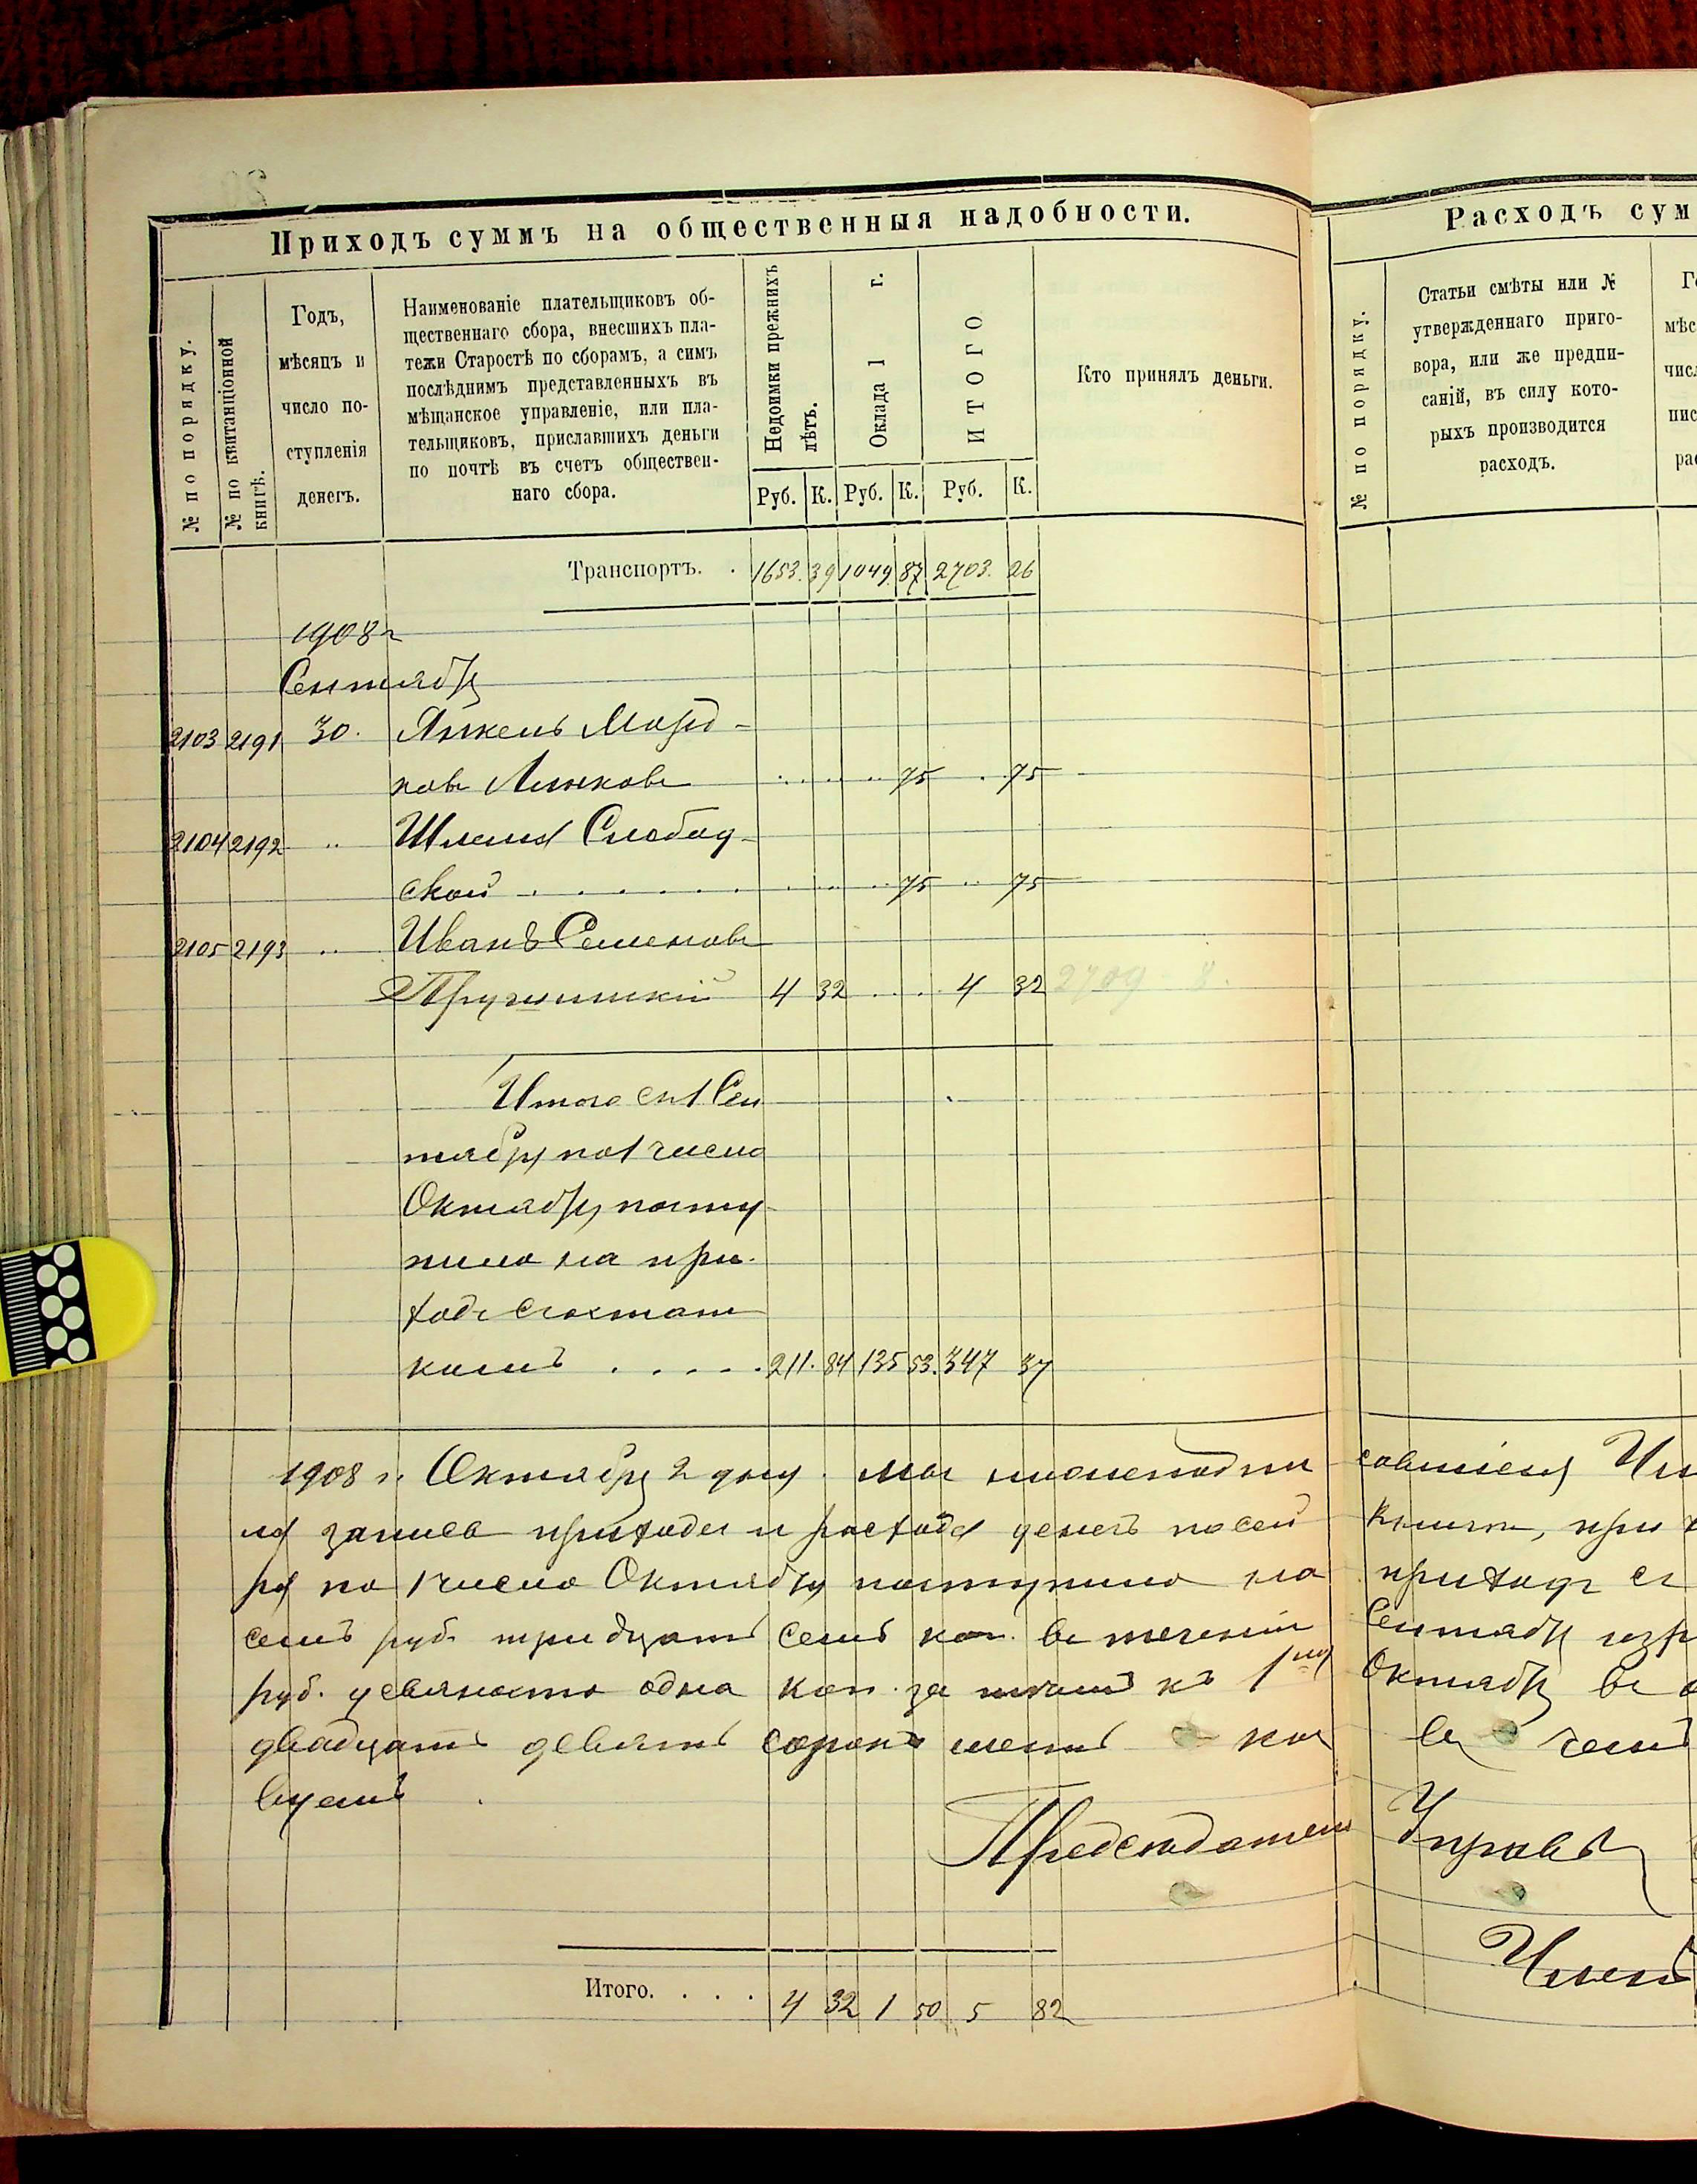 Приходъ суммъ на общественныя надобности.
№ по порядку.
№ по квитанціонной книгѣ.
Годъ,
мѣсяцъ и
число по-
ступленія
денегъ.
Наименованіе плательщиковъ об-
щественнаго сбора, внесшихъ пла-
тежи Старостѣ по сборамъ, а симъ
послѣднимъ представленныхъ въ
мѣщанское управленіе, или пла-
тельщиковъ, приславшихъ деньги
по почтѣ въ счетъ обществен-
наго сбора.
Недоимки прежнихъ лѣтъ.
Оклада 1 г.
ИТОГО
Руб. К. Руб. К. Руб. К.
Кто принялъ деньги.
Транспортъ. . 1653. 39 1049. 87 2703. 26
1908 г
Сентября
2103 2191 30. Янкель Морд-
ковъ 75 75
2104 2192 " Шлема Слобод-
ской . . . . . . 75 75
2105 2193 " Иванъ Семеновъ
4 32 4 32 2709 8.
Итого съ 1 Сен
тября по 1 число
Октября посту-
пило на при-
ходъ съ остат
комъ . . . . . 211. 84 135 53. 347 37
1908 г. Октября 2 дня. Мы нижеподпи
ля записи прихода и расхода денегъ по сей
ря по 1 число Октября поступило на
семь руб. тридцать семь коп. въ теченіи
руб. девяносто одна коп. за тѣмъ къ 1му
двадцать девять сорокъ шесть ко
вуемъ
Предсѣдатель
Итого. . . . 4 32 1 50 5 82
Расходъ сум
№ по порядку.
Статьи смѣты или №
утвержденнаго приго-
вора, или же предпи-
саній, въ силу кото-
рыхъ производится
расходъ.
Г
мѣс
чис
пис
ра
савшіеся
книги, при
приходъ съ
Сентября изр
Октября въ
въ чемъ
Управы
Члены